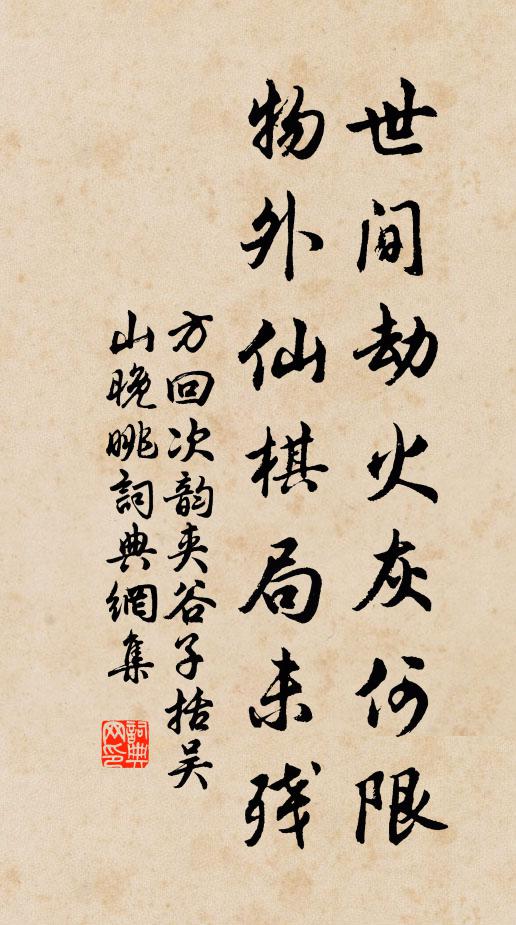 世间劫火灰何限
物外仙棋局未残
方回次韵夹谷子括吴
山晚眺詞典網集
詞典
网印